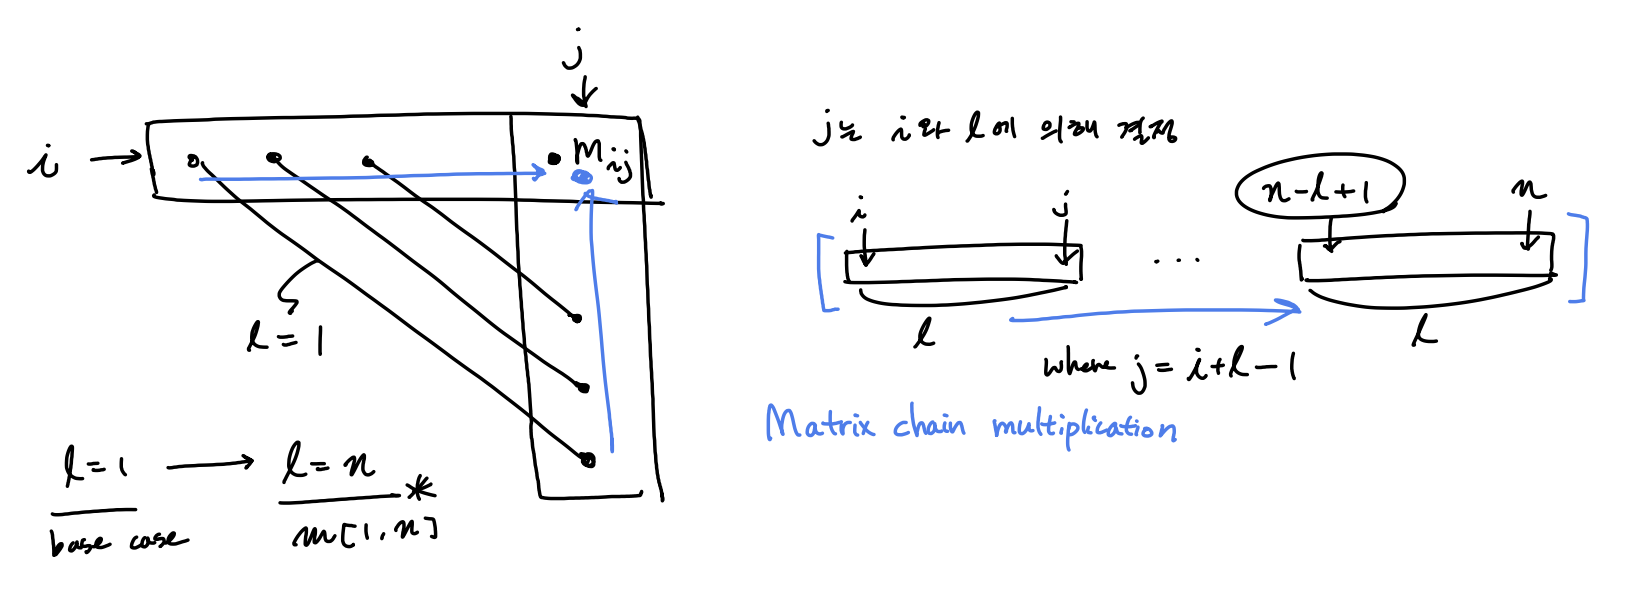 j
i
m ij
l = 1
l = 1 → l = n
base case
m[1, n] *
j는 i와 l에 의해 결정
i j n-l+1 n
...
l l
where j = i+l-1
Matrix chain multiplication